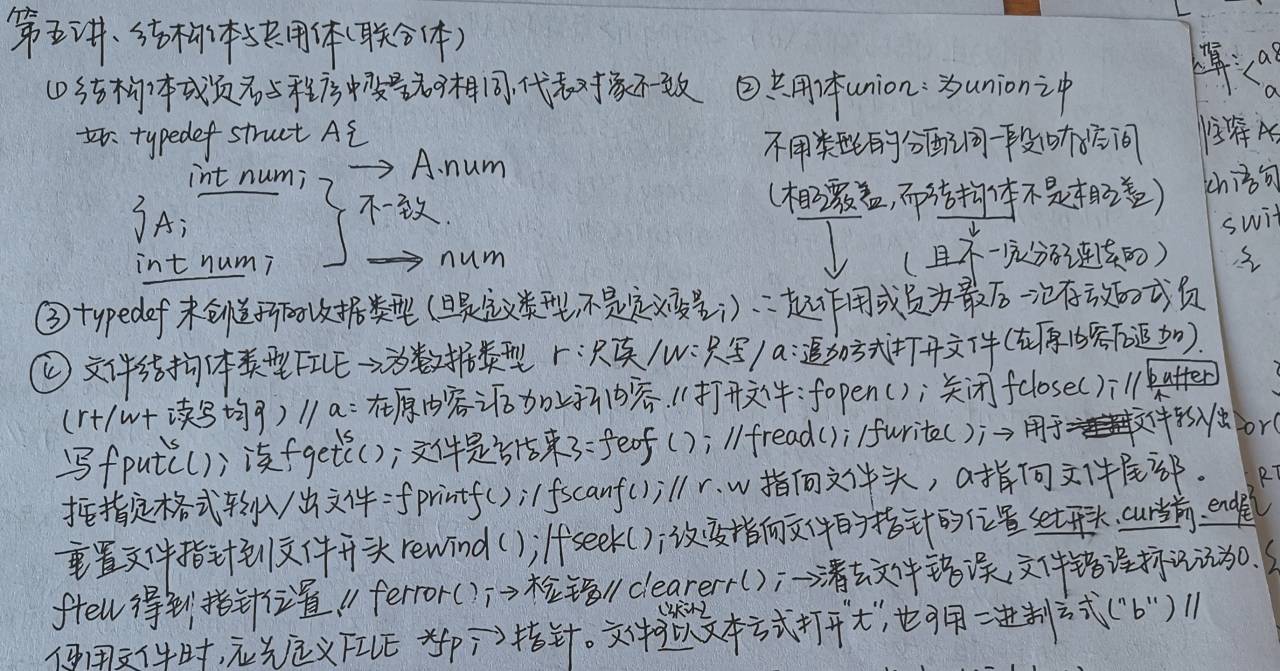 第五讲、结构体与共用体(联合体)
① 结构体成员名与程序中变量名可相同,代表对象不一致
如: typedef struct A{
int num; → A.num
}A; 不一致.
int num; → num
② 共用体union: 为union之中
不用类型的分配到同一段内存空间
(相互覆盖,而结构体不是相互盖)
(且不一定分配连续的)
③ typedef 未创造新的数据类型(但是定义类型,不是定义变量;) ∴起作用成员为最后一次存放的成员
④ 文件结构体类型FILE→为数据类型 r:只读/w:只写/a:追加方式打开文件(在原内容后追加).
(r+/w+ 读写均可) // a:在原内容之后加上新内容.// 打开文件:fopen(); 关闭fclose();// buffer
写fputc(); 读fgetc(); 文件是否结束了=feof(); //fread();/fwrite();→用于文件输入/出
按指定格式输入/出文件=fprintf();/fscanf();// r.w 指向文件头, a指向文件尾部。
重置文件指针到文件开头rewind();/fseek();改变指向文件的指针的位置 set开头.cur当前.end尾
ftell 得到指针位置// ferror();→检错// clearerr();→清去文件错误,文件错误标识设为0.
使用文件时,应先定义FILE *fp;→指针。文件可以文本方式打开"t",也可用二进制方式("b")//
(默认)
算:<a
注释
ch语句
swit
{
or(